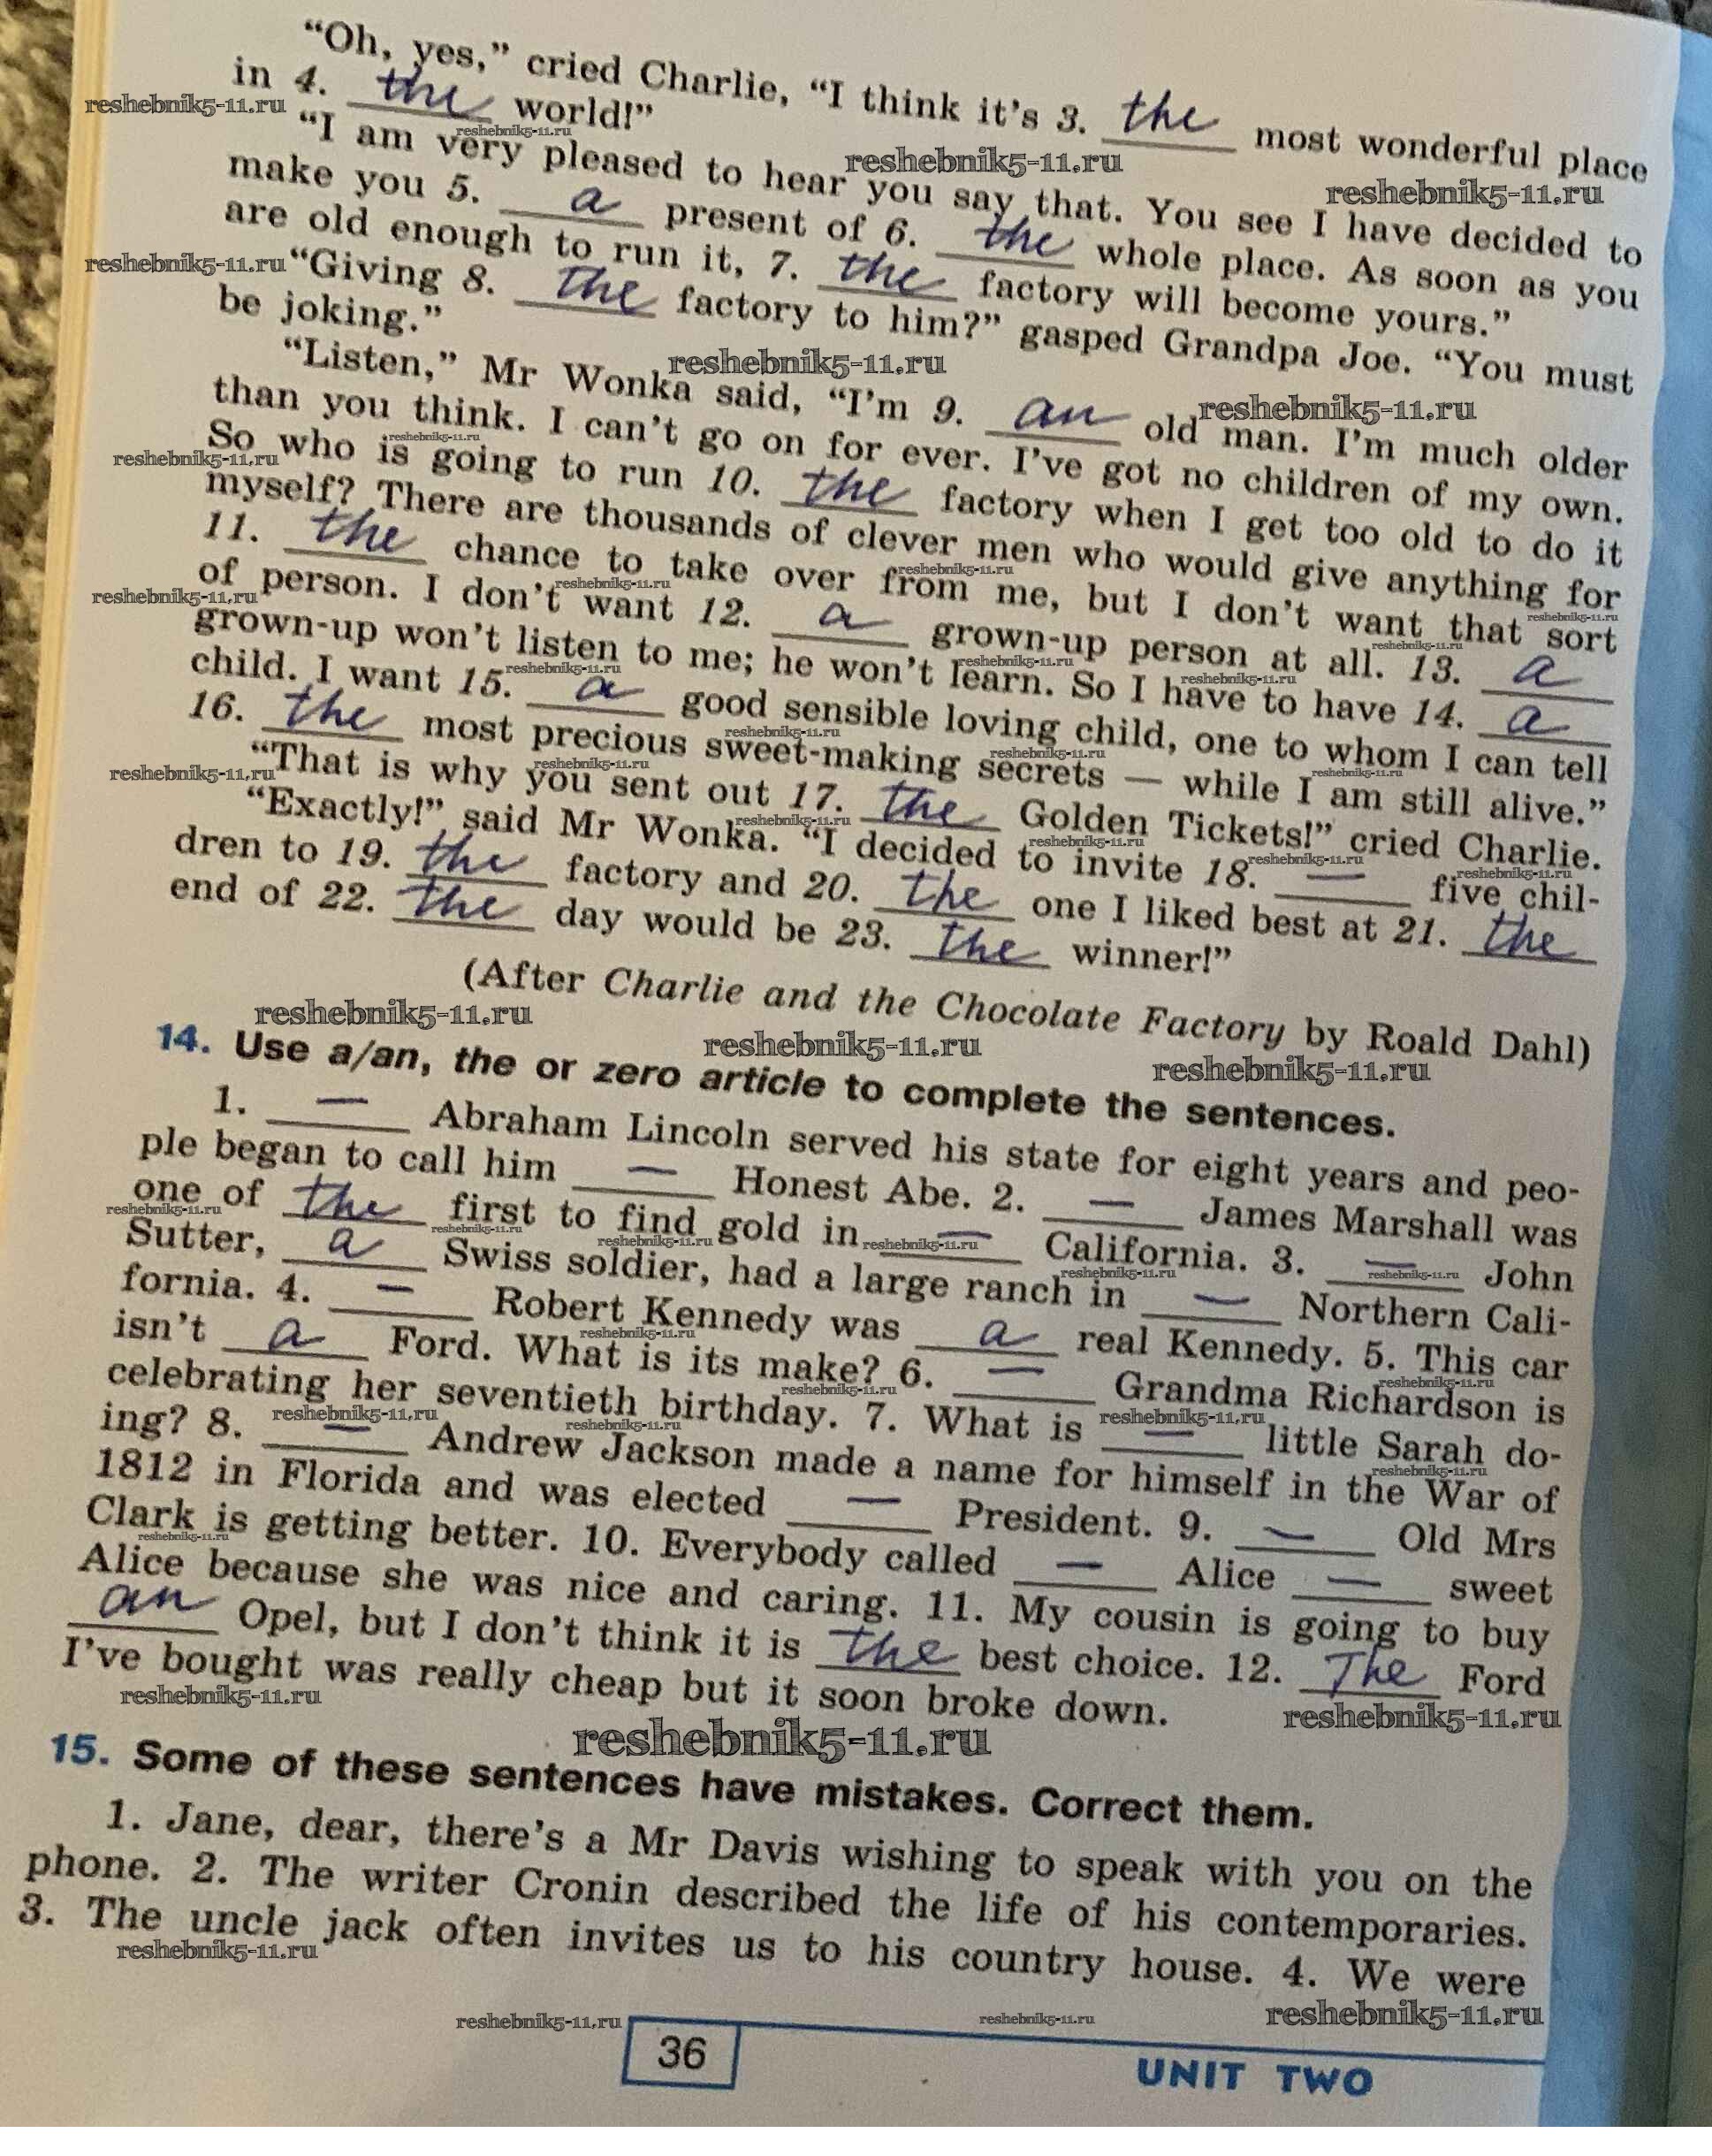 “Oh, yes,” cried Charlie, “I think it’s 3. the most wonderful place
in 4. the world!”
“I am very pleased to hear you say that. You see I have decided to
make you 5. a present of 6. the whole place. As soon as you
are old enough to run it, 7. the factory will become yours.”
“Giving 8. the factory to him?” gasped Grandpa Joe. “You must
be joking.”
“Listen,” Mr Wonka said, “I’m 9. an old man. I’m much older
than you think. I can’t go on for ever. I’ve got no children of my own.
So who is going to run 10. the factory when I get too old to do it
myself? There are thousands of clever men who would give anything for
11. the chance to take over from me, but I don’t want that sort
of person. I don’t want 12. a grown-up person at all. 13. a
grown-up won’t listen to me; he won’t learn. So I have to have 14. a
child. I want 15. a good sensible loving child, one to whom I can tell
16. the most precious sweet-making secrets — while I am still alive.”
“That is why you sent out 17. the Golden Tickets!” cried Charlie.
“Exactly!” said Mr Wonka. “I decided to invite 18. — five chil-
dren to 19. the factory and 20. the one I liked best at 21. the
end of 22. the day would be 23. the winner!”
(After Charlie and the Chocolate Factory by Roald Dahl)
14. Use a/an, the or zero article to complete the sentences.
1. — Abraham Lincoln served his state for eight years and peo-
ple began to call him — Honest Abe. 2. — James Marshall was
one of the first to find gold in — California. 3. — John
Sutter, a Swiss soldier, had a large ranch in — Northern Cali-
fornia. 4. — Robert Kennedy was a real Kennedy. 5. This car
isn’t a Ford. What is its make? 6. — Grandma Richardson is
celebrating her seventieth birthday. 7. What is — little Sarah do-
ing? 8. — Andrew Jackson made a name for himself in the War of
1812 in Florida and was elected — President. 9. — Old Mrs
Clark is getting better. 10. Everybody called — Alice — sweet
Alice because she was nice and caring. 11. My cousin is going to buy
an Opel, but I don’t think it is the best choice. 12. The Ford
I’ve bought was really cheap but it soon broke down.
15. Some of these sentences have mistakes. Correct them.
1. Jane, dear, there’s a Mr Davis wishing to speak with you on the
phone. 2. The writer Cronin described the life of his contemporaries.
3. The uncle jack often invites us to his country house. 4. We were
36
UNIT TWO
reshebnik5-11.ru